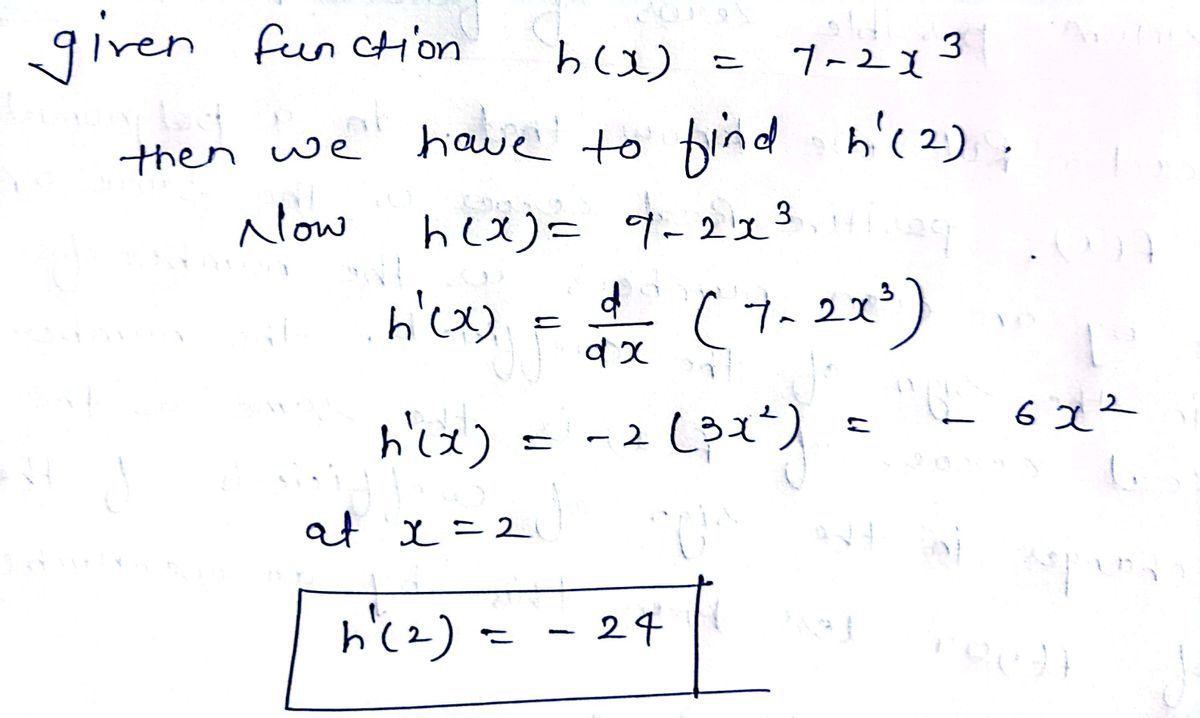 given function h(x) = 7-2x³
then we have to find h'(2).
Now h(x) = 7-2x³
h'(x) = d/dx (7-2x³)
h'(x) = -2(3x²) = - 6x²
at x=2
h'(2) = - 24